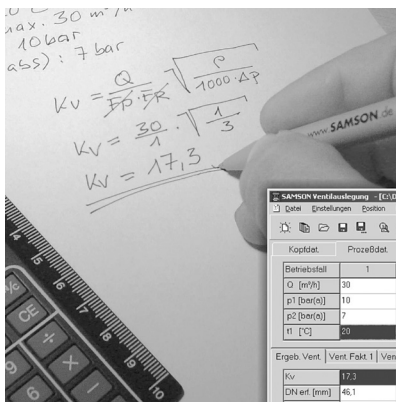 20°C
max. 30 m³/h
10 bar
abs) : 7 bar
Kv = Q / Fp·FR · √ ρ / 1000·Δp
Kv = 30 / 1 · √ 1 / 3
Kv = 17,3
www.SAMSON.de
SAMSON Ventilauslegung - [C:\D
Datei Einstellungen Position
Kopfdat. Prozeßdat.
Betriebsfall 1
Q [m³/h] 30
p1 [bar(a)] 10
p2 [bar(a)] 7
t1 [°C] 20
Ergeb. Vent. Vent. Fakt. 1 Ven
Kv 17,3
DN erf. [mm] 46,1
CE
÷
×
9
6
15
14
13
12
11
10